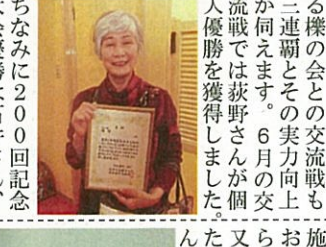 る櫟の会との交流戦も
三連覇とその実力向上
が伺えます。6月の交
流戦では荻野さんが個
人優勝を獲得しました。
ちなみに200回記念
施
お
ら
又
た
ん